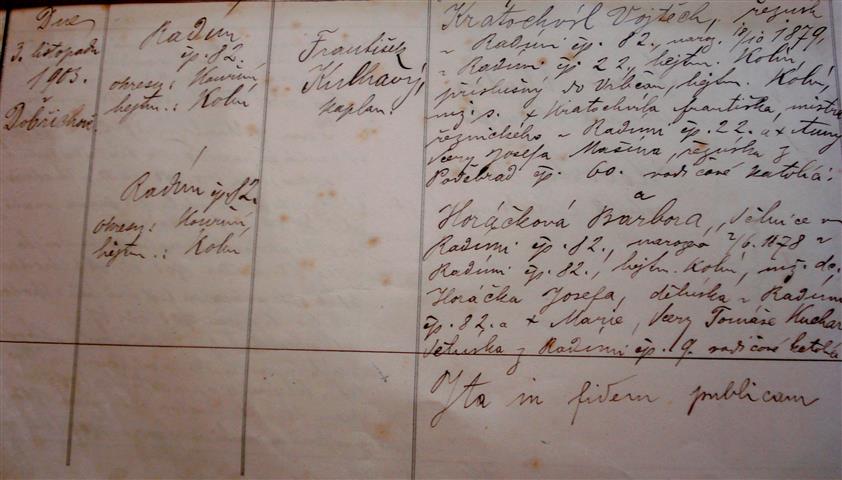 Dne
3. listopadu
1903.
Dobřichov.
Radim
čp. 82.
okresy: Kouřim,
hejtm.: Kolín
Radim čp. 82.
okresy: Kouřim,
hejtm.: Kolín
František
Kulhavý,
kaplan.
Kratochvíl Vojtěch, řezník
v Radimi čp. 82., naroz. 1879,
v Radimi čp. 22., hejtm. Kolín,
příslušný do Vrbčan, hejtm. Kolín,
Kratochvíla Františka, mistra
řeznického v Radimi čp. 22. a † Anny
dcery Josefa Mašina, řezníka z
Poděbrad čp. 60. rodičové katolíci.
a
Horáčková Barbora, dělnice v
Radimi čp. 82., 2/6. 1878 v
Radimi čp. 82., hejtm. Kolín, dc.
Horáčka Josefa, dělníka v Radimi
čp. 82. a † Marie, dcery Tomáše Kuchar
dělníka z Radimi čp. 9. rodičové katolí
Ita in fidem publicam